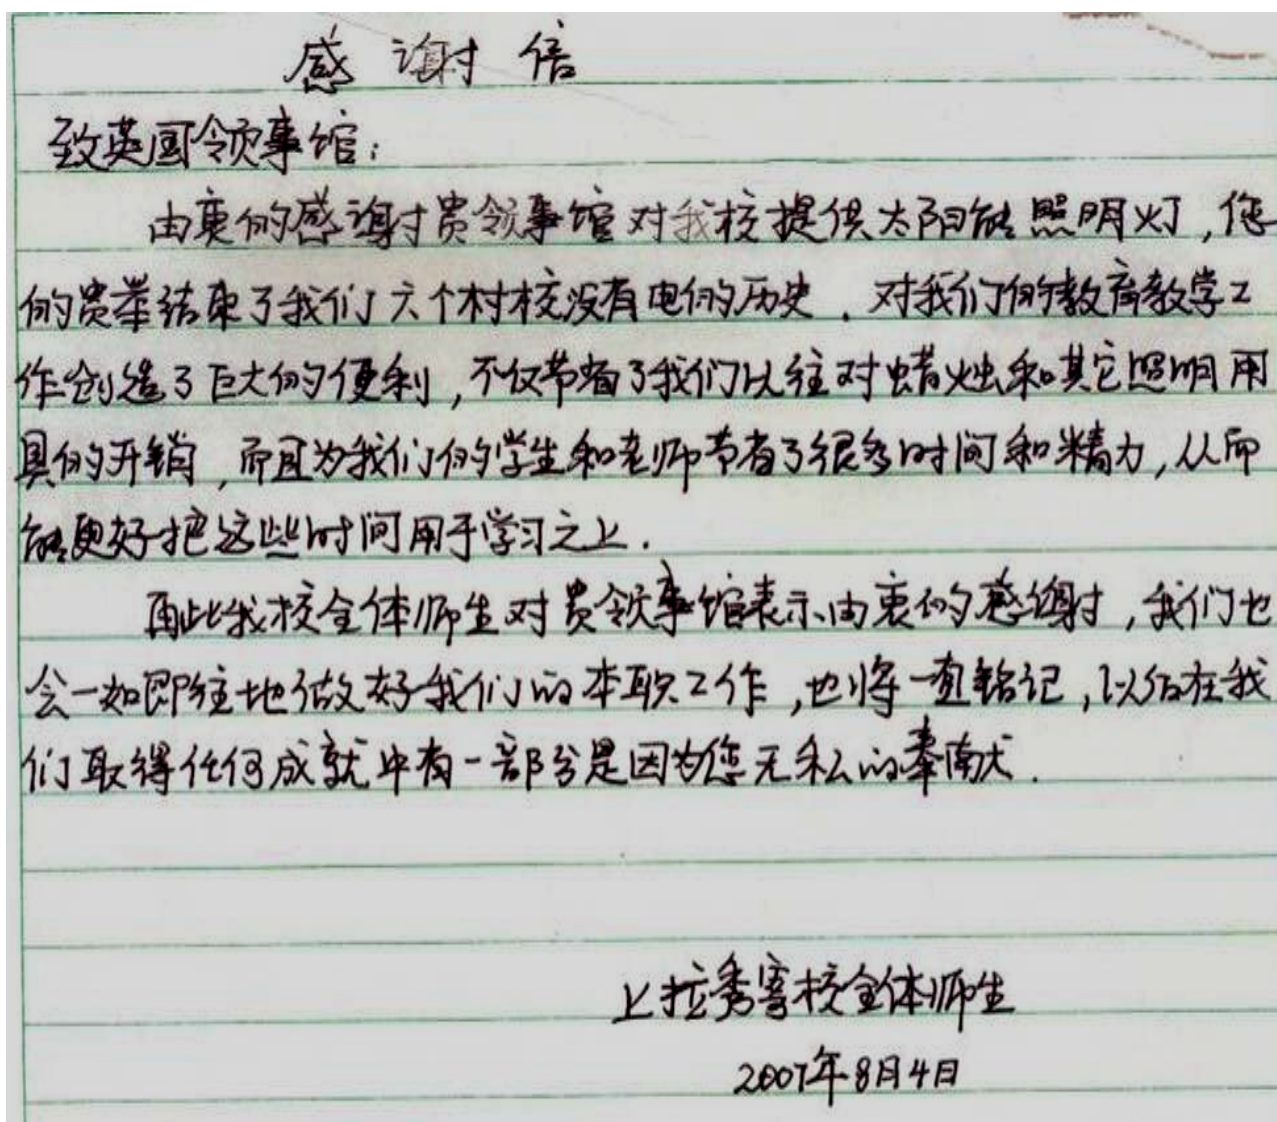 感谢信
致英国领事馆:
由衷的感谢贵领事馆对我校提供太阳能照明灯,您
的贵举结束了我们六个村校没有电的历史.对我们的教育教学工
作创造了巨大的便利,不仅节省了我们以往对蜡烛和其它照明用
具的开销,而且为我们的学生和老师节省了很多时间和精力,从而
能更好把这些时间用于学习之上.
再此我校全体师生对贵领事馆表示由衷的感谢,我们也
会一如即往地做好我们的本职工作,也将一直铭记,以后在我
们取得任何成就中有一部分是因为您无私的奉献.
上拉秀寄校全体师生
2007年8月4日